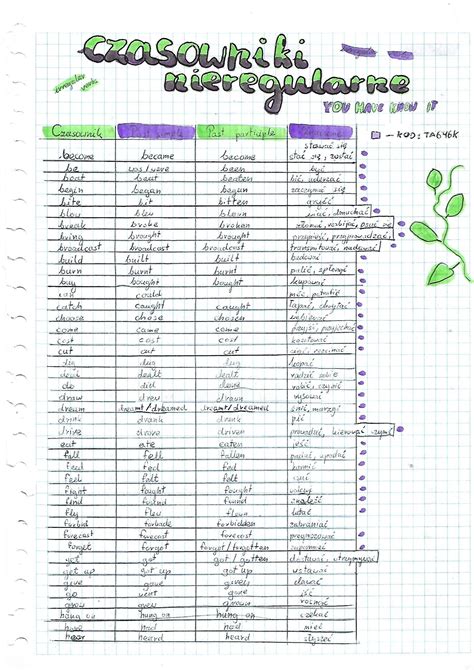 czasowniki
nieregularne
irregular verbs
YOU HAVE KNOW IT
Czasownik Past simple Past participle
stawać się
become became become stać się, zostać
be was/were been być
beat beat beaten bić, uderzać
begin began begun zaczynać się
bite bit bitten gryźć
blow blew blown wiać, dmuchać
break broke broken
bring brought brought przynosić, przyprowadzać,
broadcast broadcast broadcast transmitować, nadawać
build built built budować
burn burnt burnt palić, spłonąć
buy bought bought kupować
can could móc, potrafić
catch caught caught łapać, chwytać
choose chose chosen wybierać
come came come przyjść, przyjechać
cost cost cost kosztować
cut cut cut ciąć, przecinać
dig dug dug kopać
deal dealt dealt radzić sobie
do did done robić, czynić
draw drew drawn rysować
dream dreamt/dreamed dreamt/dreamed śnić, marzyć
drink drank drunk pić
drive drove driven prowadzić, kierować czymś
eat ate eaten jeść
fall fell fallen padać, spadać
feed fed fed karmić
feel felt felt czuć
fight fought fought walczyć
find found found znaleźć
fly flew flown latać
forbid forbade forbidden zabraniać
forecast forecast forecast prognozować
forget forgot forgot/forgotten zapomnieć
get got got/gotten dostawać, otrzymywać
get up got up got up wstawać
give gave given dawać
go went gone iść
grow grew grown rosnąć
hang on hung on hung on czekać
have had had mieć
hear heard heard słyszeć